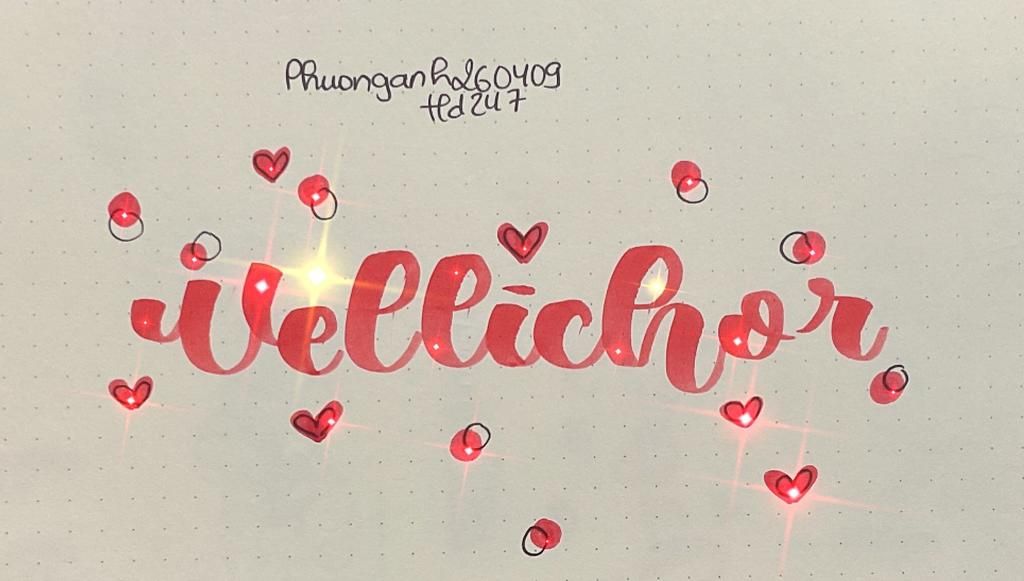 Phuonganh260409
Hd247
Vellichor